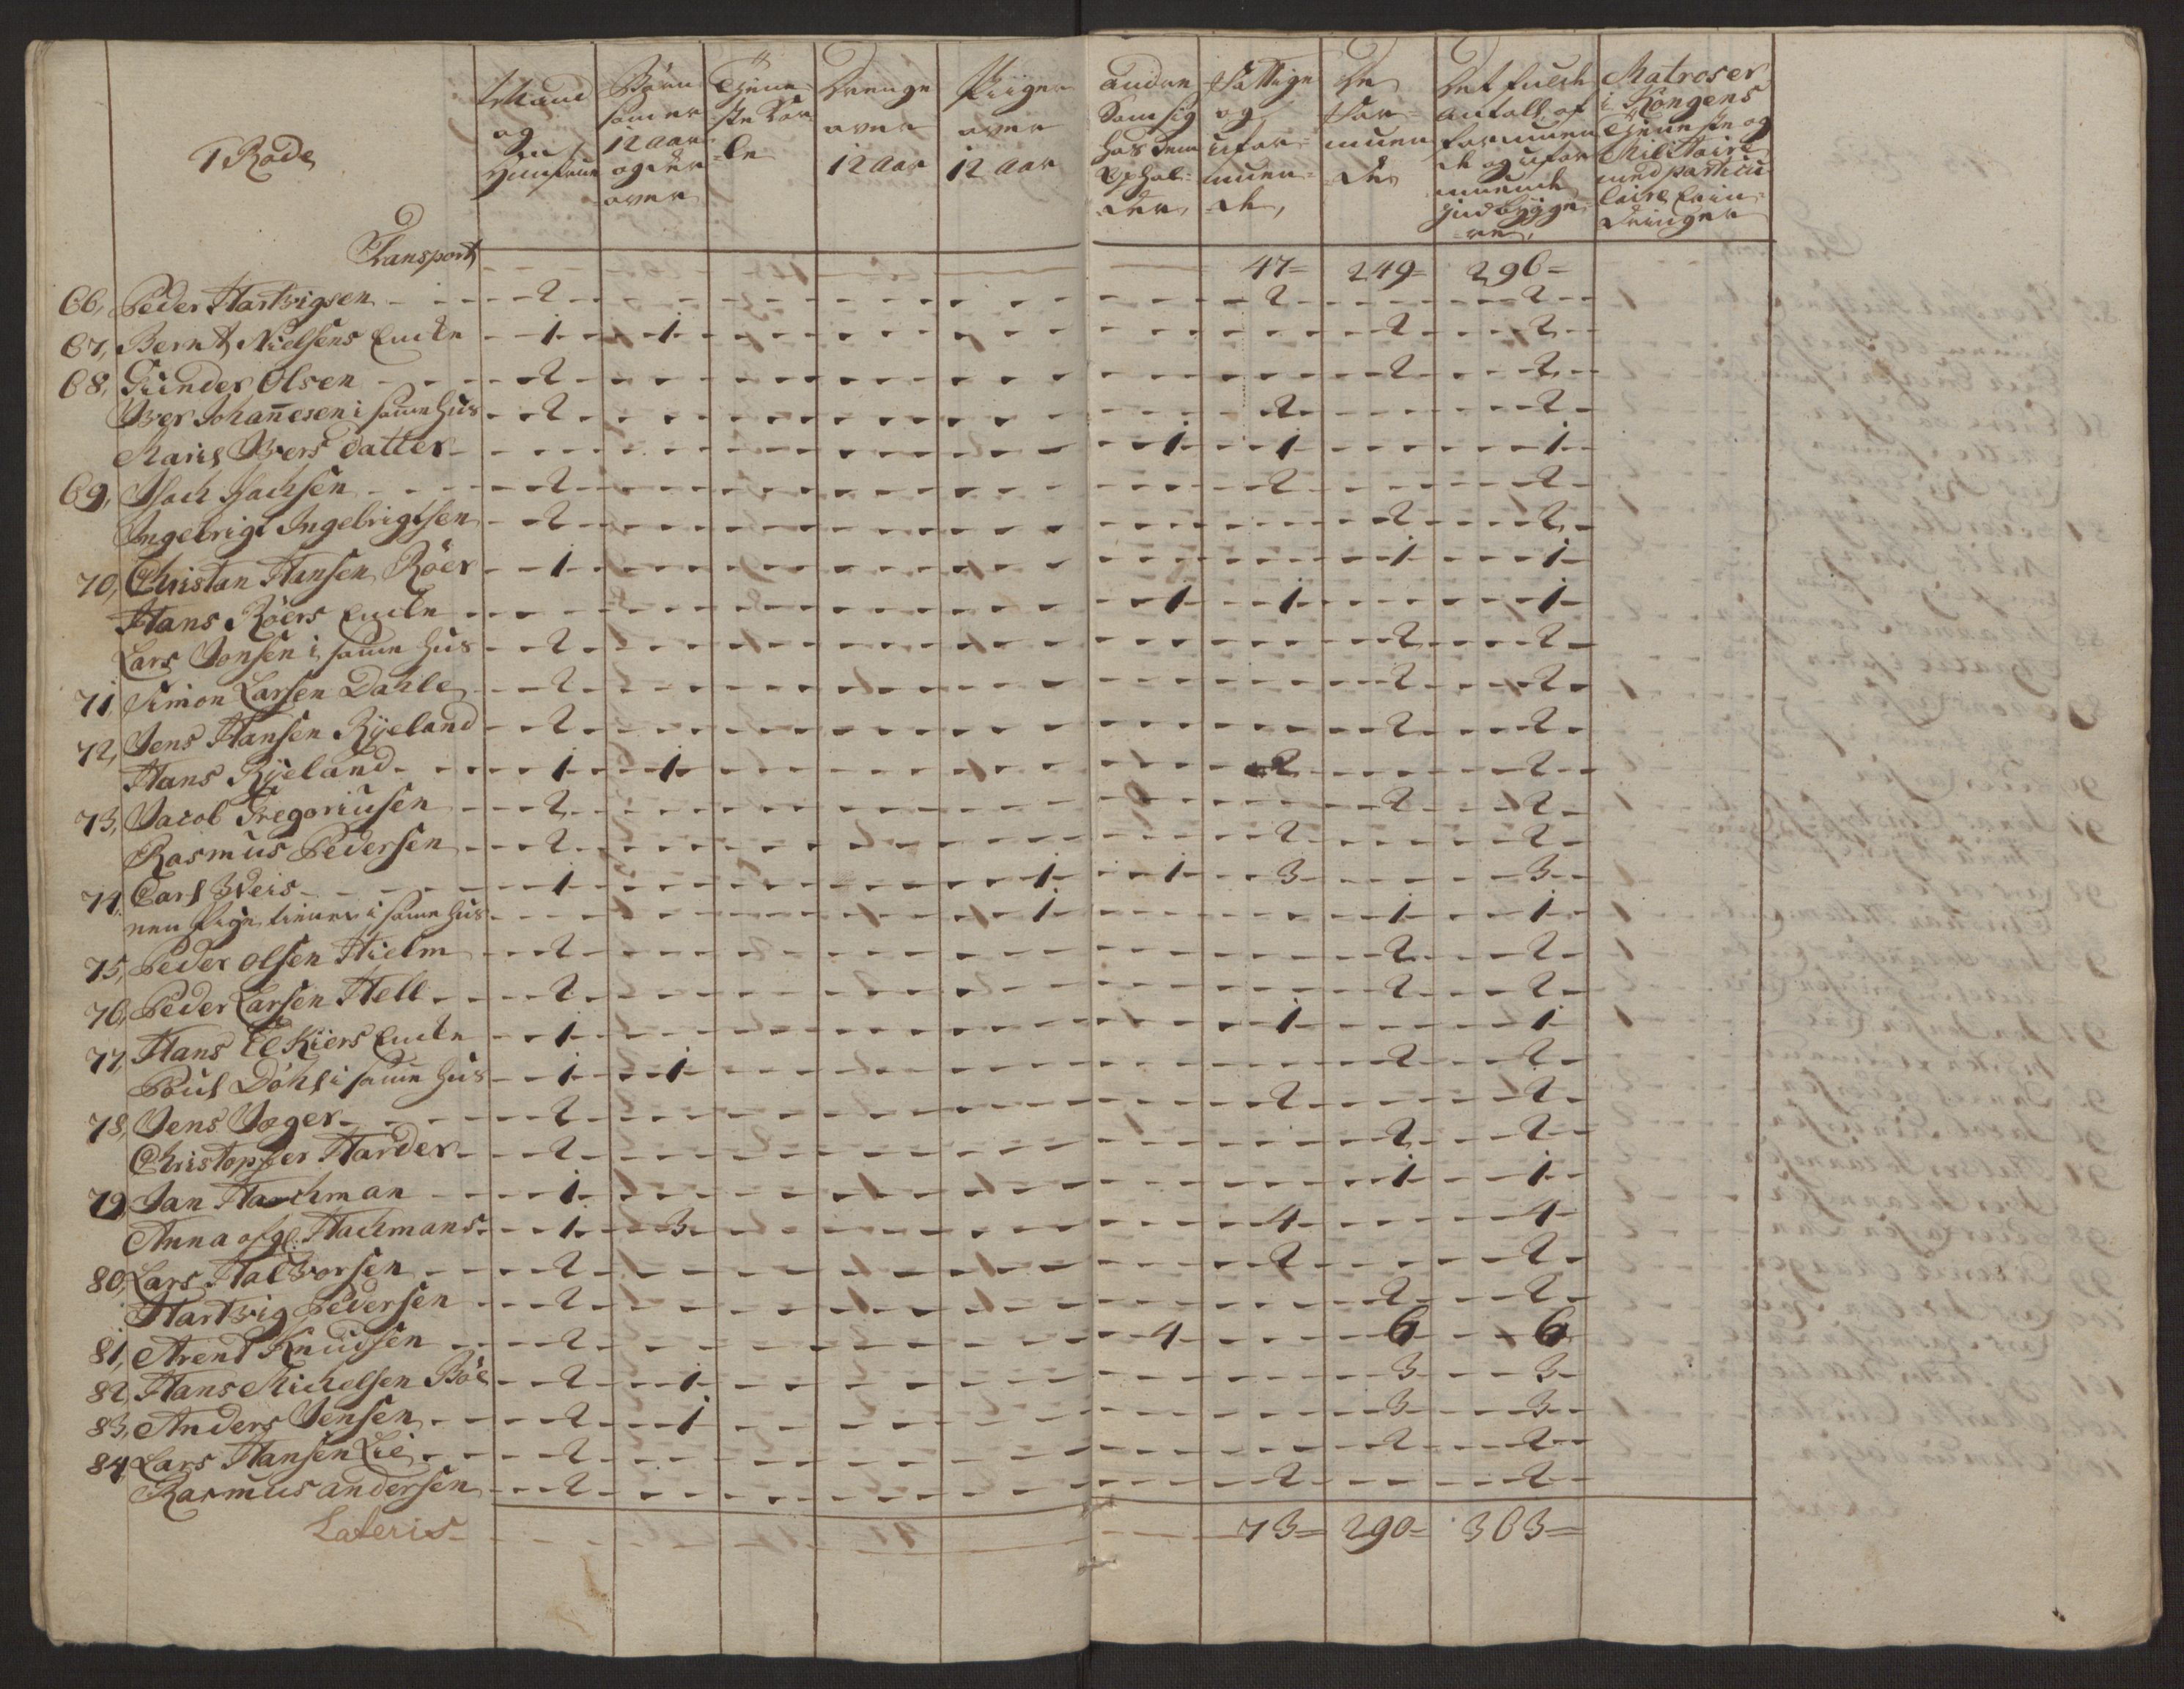 1 Rode
Mand og Hustrue
Börn som er 12 aar og der over
Tjeneste Kar=le
Drenge over 12 aar
Piiger over 12 aar
andre Som sig hos dem Ophol=der
Fattige og ufor=muen=de,
De For=muen=de
Det fulde antall af formuende og uformuende Indbygge=re,
Matroser i Kongens Tjeneste og Militaire med particulaire Erin=dringer
Transport 47= 249= 296=
66, Peder Hartvigsen 2 2 2
67, Bernt Nielsens Enke 1 1 2 2
68, Gunder Olsen 2 2 2
Iver Johanesen i same Hus 2 2 2
Maris Ivers datter 1 1 1
69, Isach Isachsen 2 2 2
Ingebrigt Ingebrigtsen 2 2 2
70, Christan Hansen Röer 1 1 1
Hans Röers Encke 1 1 1
Lars Jonsen i same Hus 2 2 2
71, Simon Larsen Dahle 2 2 2
72, Jens Hansen Ryeland 2 2 2
Hans Ryeland 1 1 2 2
73, Jacob Gregoriusen 2 2 2
Rasmus Pedersen 2 2 2
74, Carl Weis 1 1 1 3 3
nen Pige tiener i same Hus 1 1 1
75, Peder olsen Hielm 2 2 2
76, Peder Larsen Hell 2 2 2
77, Hans El Kiers Encke 1 1 1
Poul Döhl i same Hus 1 1 2 2
78, Jens Jæger 2 2 2
Christopfer Harder 2 2 2
79, Jan Hachman 1 1 1
Anna afgl: Hachmans 1 3 4 4
80, Lars Halvorsen 2 2 2
Hartvig Pedersen 2 2 2
81, Arend Knudsen 2 4 6 6
82, Hans Michelsen Böe 2 1 3 3
83, Anders Jensen 2 1 3 3
84, Lars Hansen Lie 2 2 2
Rasmus andersen 2 2 2
Lateris 73= 290= 363=